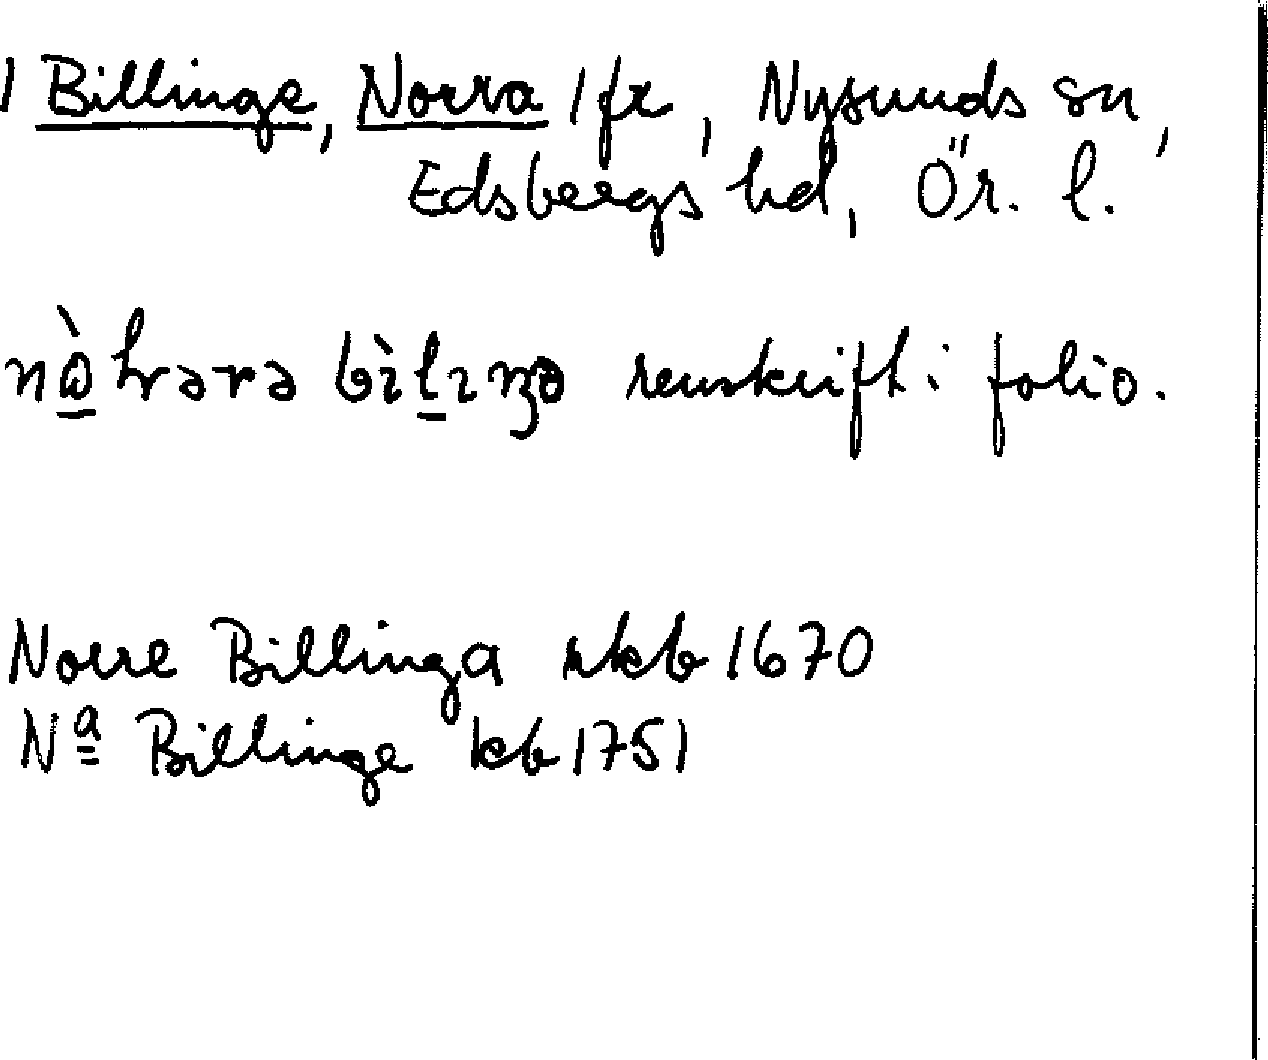 1 Billinge, Norra 1 fr, Nysunds sn,
Edsbergs hd, Ör. l.
renskrift i folio.
Norre Billinga mkb 1670
Nª Billinge kb 1751